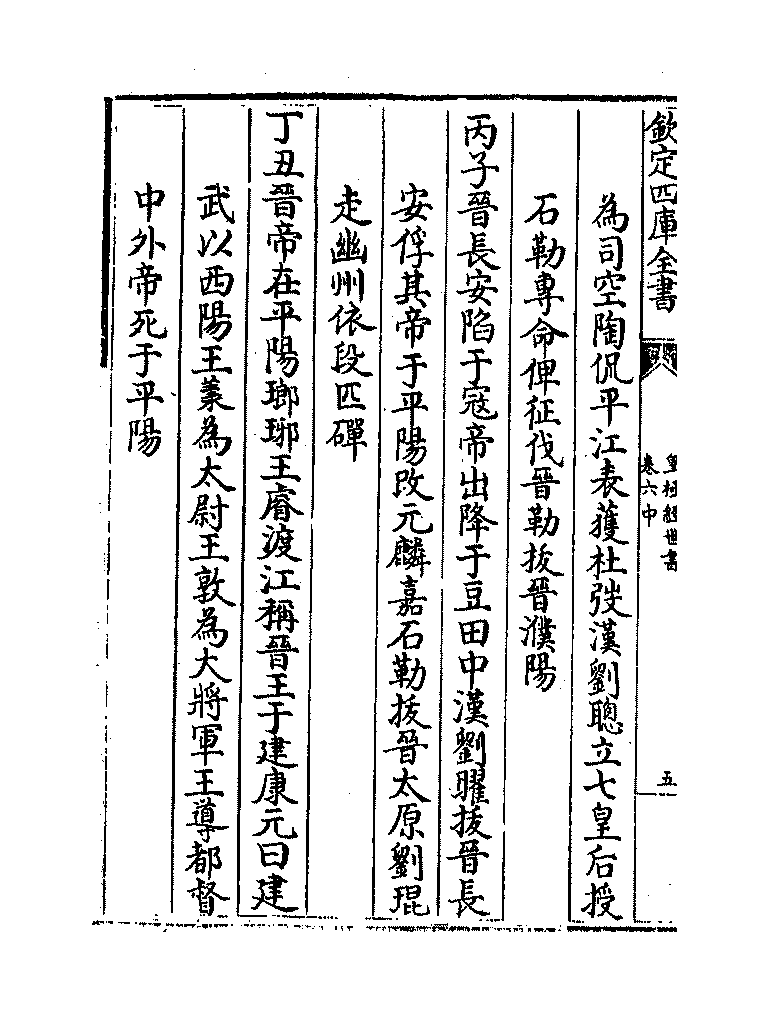 欽定四庫全書
皇極經世書
卷六中
五
為司空陶侃平江表獲杜弢漢劉聰立七皇后授
石勒專命俾征伐晉勒拔晉濮陽
丙子晉長安陷于寇帝出降于豆田中漢劉曜拔晉長
安俘其帝于平陽改元麟嘉石勒拔晉太原劉琨
走幽州依段匹磾
丁丑晉帝在平陽瑯琊王睿渡江稱晉王于建康元曰建
武以西陽王羕為太尉王敦為大將軍王導都督
中外帝死于平陽